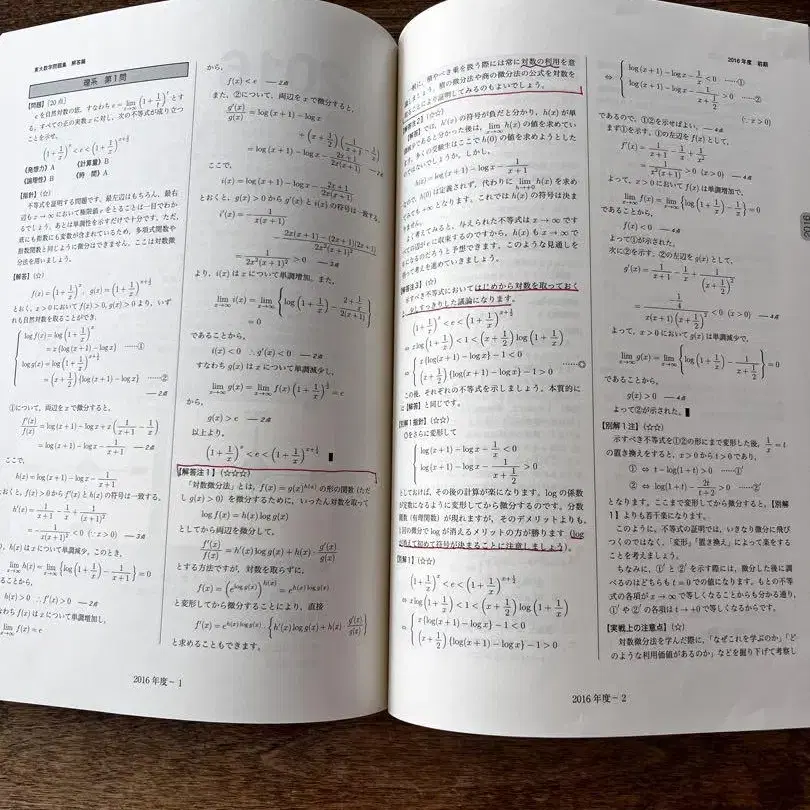 東大数学問題集 解答編
理系 第1問
【問題】[20点]
eを自然対数の底，すなわち e = lim_{x→∞}(1+1/x)^x とする。すべての正の実数xに対し，次の不等式が成り立つことを示せ。
(1+1/x)^x < e < (1+1/x)^{x+1/2}
《発想力》A 《計算量》B
《論理性》B 《時 間》A
【指針】(☆)
不等式を証明する問題です。最左辺はもちろん，最右辺もx→∞において極限値eをとることは一目でわかるでしょう。あとは単調性を示すだけで十分です。ただ，底にも指数にも変数が含まれているため，多項式関数や指数関数と同じように微分はできません。ここは対数微分法を用いましょう。
【解答】(☆)
f(x)=(1+1/x)^x, g(x)=(1+1/x)^{x+1/2}
とおく。x>0において f(x)>0, g(x)>0 より，いずれも自然対数を取ることができ，
log f(x)=log(1+1/x)^x
=x{log(x+1)−log x} ……①
log g(x)=log(1+1/x)^{x+1/2}
=(x+1/2){log(x+1)−log x} ……②
—2点
①について，両辺をxで微分すると，
f'(x)/f(x)=log(x+1)−log x+x(1/(x+1)−1/x)
=log(x+1)−log x−1/(x+1) —2点
ここで，
h(x)=log(x+1)−log x−1/(x+1)
とおくと，f(x)>0からf'(x)とh(x)の符号は一致する。
h'(x)=1/(x+1)−1/x+1/(x+1)^2
=−1/(x(x+1)^2)<0 (∵x>0) —2点
h(x)はxについて単調減少。このとき，
lim_{x→∞}h(x)=lim_{x→∞}{log(1+1/x)−1/(x+1)}=0
h(x)>0 ∴f'(x)>0 —2点
わちf(x)はxについて単調増加し，
lim_{x→∞}f(x)=e
から，
f(x)<e —2点
また，②について，両辺をxで微分すると，
g'(x)/g(x)=log(x+1)−log x
+(x+1/2)(1/(x+1)−1/x)
=log(x+1)−log x−(2x+1)/(2x(x+1)) —2点
ここで，
i(x)=log(x+1)−log x−(2x+1)/(2x(x+1))
とおくと，g(x)>0からg'(x)とi(x)の符号は一致する。
i'(x)=−1/(x(x+1))
−(2x(x+1)−(2x+1)(2x+1))/(2x^2(x+1)^2)
=1/(2x^2(x+1)^2)>0 —3点
より，i(x)はxについて単調増加。また，
lim_{x→∞}i(x)=lim_{x→∞}{log(1+1/x)−(2+1/x)/(2(x+1))}
=0
であることから，
i(x)<0 ∴g'(x)<0 —2点
すなわちg(x)はxについて単調減少し，
lim_{x→∞}g(x)=lim_{x→∞}f(x)(1+1/x)^{1/2}=e
から，
g(x)>e —2点
以上より，
(1+1/x)^x<e<(1+1/x)^{x+1/2} ■
【解答注1】(☆☆☆)
「対数微分法」とは，f(x)=g(x)^{h(x)}の形の関数（ただしg(x)>0）を微分するために，いったん対数を取って
log f(x)=h(x)log g(x)
としてから両辺を微分して，
f'(x)/f(x)=h'(x)log g(x)+h(x)・g'(x)/g(x)
とする方法ですが，対数を取らずに，
f(x)=(e^{log g(x)})^{h(x)}=e^{h(x)log g(x)}
と変形してから微分することにより，直接
f'(x)=e^{h(x)log g(x)}・{h'(x)log g(x)+h(x)・g'(x)/g(x)}
と求めることもできます。
2016年度−1
2016年度 前期
一般に，積やべき乗を扱う際には常に対数の利用を意
しましょう。積の微分法や商の微分法の公式を対数を
ことにより証明してみるのもよいでしょう。
【解答注2】(☆☆)
では，h'(x)の符号が負だと分かり，h(x)が単
であると分かった後は，lim_{x→∞}h(x)の値を求めてい
ます。多くの受験生はここでh(0)の値を求めようとした
のではないでしょうか。しかし，
h(x)=log(x+1)−log x−1/(x+1)
なので，h(0)は定義されず，代わりにlim h(x)を求め
ても+∞となります。これではh(x)の符号は決ま
りません。
よく考えてみると，与えられた不等式はx→∞です
べての辺がeに収束するのですから，h(x)もx→∞で
になるのだろうと予想できます。このような見通しを
持って考えを進めていきましょう。
【解答注3】(☆)
示すべき不等式においてはじめから対数を取っておく
と，少しすっきりした議論になります。
(1+1/x)^x<e<(1+1/x)^{x+1/2}
⇔ x log(1+1/x)<1<(x+1/2)log(1+1/x)
⇔ x{log(x+1)−log x}−1<0
(x+1/2){log(x+1)−log x}−1>0 ……◎
この後，それぞれの不等式を示しましょう。本質的に
は【解答】と同じです。
【別解1指針】(☆☆)
◎をさらに変形して
log(x+1)−log x−1/x<0
log(x+1)−log x−1/(x+1/2)>0
としておけば，その後の計算が楽になります。logの係数
が定数になるように変形してから微分するのです。分数
関数（有理関数）が現れますが，そのデメリットよりも，
1回の微分でlogが消えるメリットの方が勝ります（log
が消えて初めて符号が決まることに注意しましょう）。
【別解1】(☆☆)
(1+1/x)^x<e<(1+1/x)^{x+1/2}
⇔ x log(1+1/x)<1<(x+1/2)log(1+1/x)
⇔ x{log(x+1)−log x}−1<0
(x+1/2){log(x+1)−log x}−1>0
⇔ log(x+1)−log x−1/x<0 ……①
log(x+1)−log x−1/(x+1/2)>0 ……②
(∵x>0)
であるので，①②を示せばよい。—4点
まず①を示す。①の左辺をf(x)として，
f'(x)=1/(x+1)−1/x+1/x^2
=1/(x^2(x+1))>0 —4点
よって，x>0においてf(x)は単調増加，
lim_{x→∞}f(x)=lim_{x→∞}{log(1+1/x)−1/x}=0
であることから，
f(x)<0 —4点
よって①が示された。
次に②を示す。②の左辺をg(x)として，
g'(x)=1/(x+1)−1/x+1/(x+1/2)^2
=−(1/4)/(x(x+1)(x+1/2)^2)<0 (x>0) —4点
よって，x>0においてg(x)は単調減少で，
lim_{x→∞}g(x)=lim_{x→∞}{log(1+1/x)−1/(x+1/2)}=0
であることから，
g(x)>0 —4点
よって②が示された。■
【別解1注】(☆☆)
示すべき不等式を①②の形にまで変形した後，1/x=t
の置き換えをすると，x>0からt>0であり，
① ⇔ t−log(1+t)>0 ……①'
② ⇔ log(1+t)−2t/(t+2)>0 ……②'
となります。ここまで変形してから微分すると，【別解
1】よりも若干楽になります。
このように，不等式の証明では，いきなり微分に飛び
つくのではなく，「変形」「置き換え」によって楽をする
ことを考えましょう。
ちなみに，①'と②'を示す際には，微分した後に調
べるのはどちらもt=0での値になります。もとの不等
式の各項がx→∞で等しくなることからも分かる通り，
①'や②'の各項はt→+0で等しくなるからです。
【実戦上の注意点】(☆)
対数微分法を学んだ際に，「なぜこれを学ぶのか」「ど
のような利用価値があるのか」などを掘り下げて考察し
2016年度−2
2016